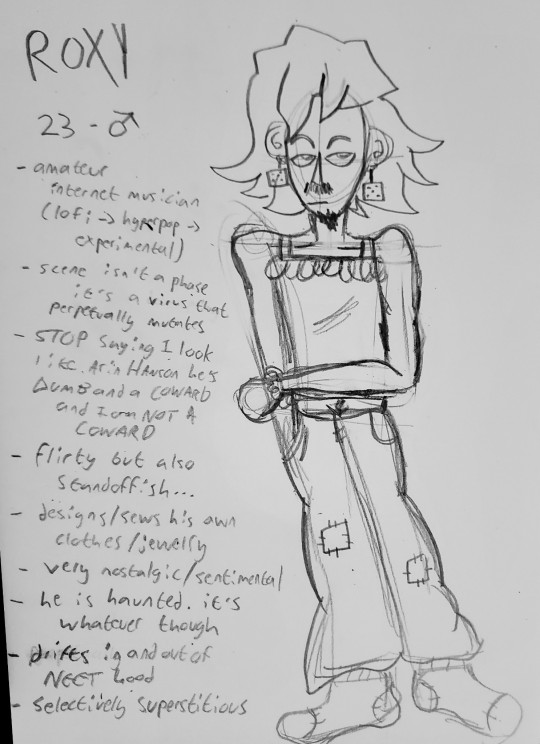 ROXY
23 - ♂
- amateur
internet musician
(lofi -> hyperpop ->
experimental)
- scene isn't a phase
it's a virus that
perpetually mutates
- STOP saying I look
like Arin Hanson he's
DUMB and a COWARD
and I am NOT A
COWARD
- flirty but also
standoffish...
- designs/sews his own
clothes/jewelry
- very nostalgic/sentimental
- he is haunted. it's
whatever though
- drifts in and out of
NEET hood
- selectively superstitious